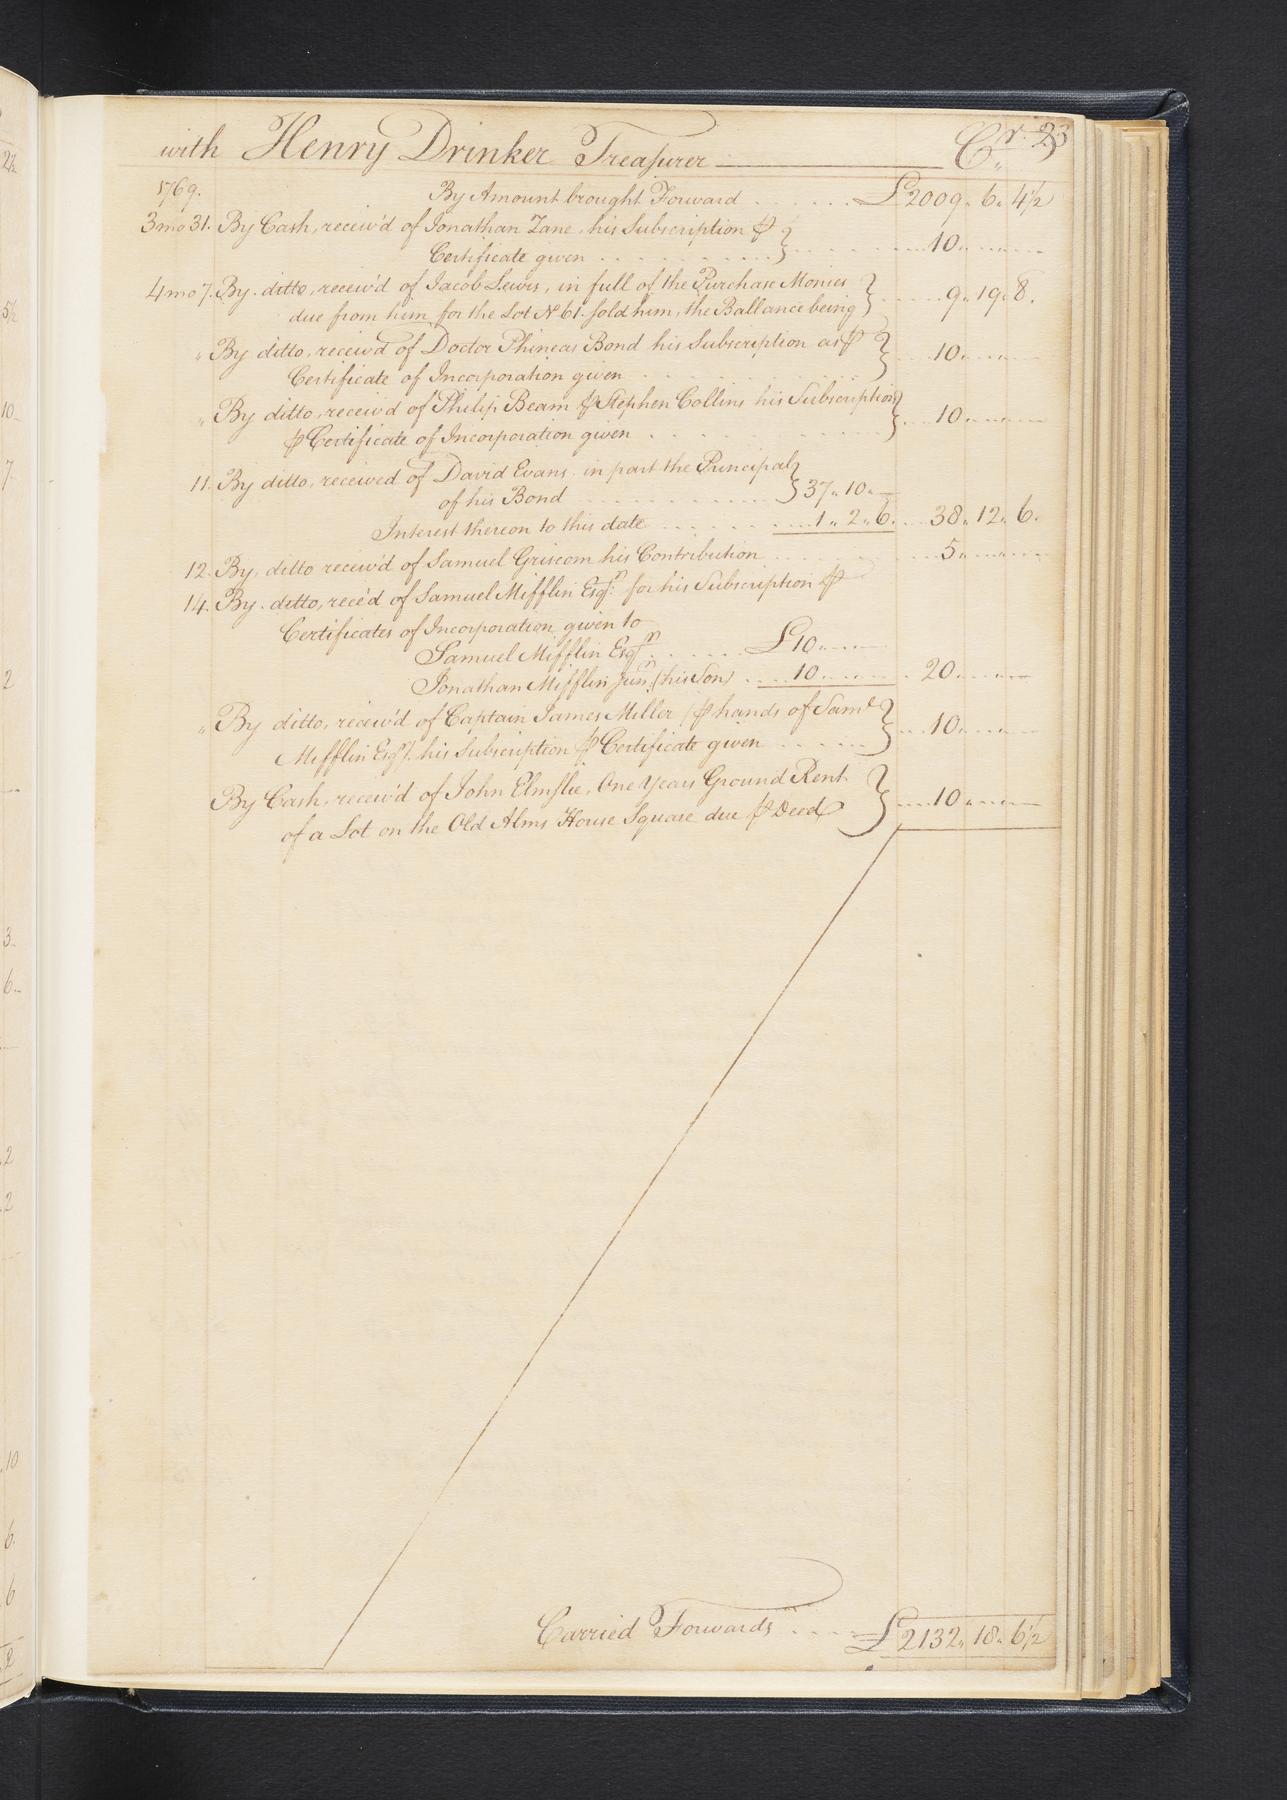 with Henry Drinker Treasurer Cr. 23
1769. By Amount brought Forward £2009. 6. 4½
3mo 31. By Cash, receiv'd of Jonathan Zane, his Subscription ⅌
Certificate given 10.
4mo 7. By ditto, receiv'd of Jacob Lewis, in full of the Purchase Monies
due from him for the Lot No 61. sold him, the Ballance being 9. 19. 8.
" By ditto, receiv'd of Doctor Phineas Bond his Subscription as ⅌
Certificate of Incorporation given 10.
" By ditto, receiv'd of Philip Beam ⅌ Stephen Collins his Subscription
⅌ Certificate of Incorporation given 10.
11. By ditto, received of David Evans in part the Principal
of his Bond 37. 10.
Interest thereon to this date 1. 2. 6. 38. 12. 6.
12. By. ditto receiv'd of Samuel Griscom his Contribution 5.
14. By. ditto, rece'd of Samuel Mifflin Esqr. for his Subscription ⅌
Certificates of Incorporation given to
Samuel Mifflin Esqr. £10.
Jonathan Mifflin junr. (his Son) 10. 20.
" By ditto, receiv'd of Captain James Miller (⅌ hands of Saml
Mifflin Esqr.) his Subscription ⅌ Certificate given 10.
By Cash, receiv'd of John Elmslie, One Years Ground Rent
of a Lot on the Old Alms House Square due ⅌ Deed 10.
Carried Forwards £2132. 18. 6½